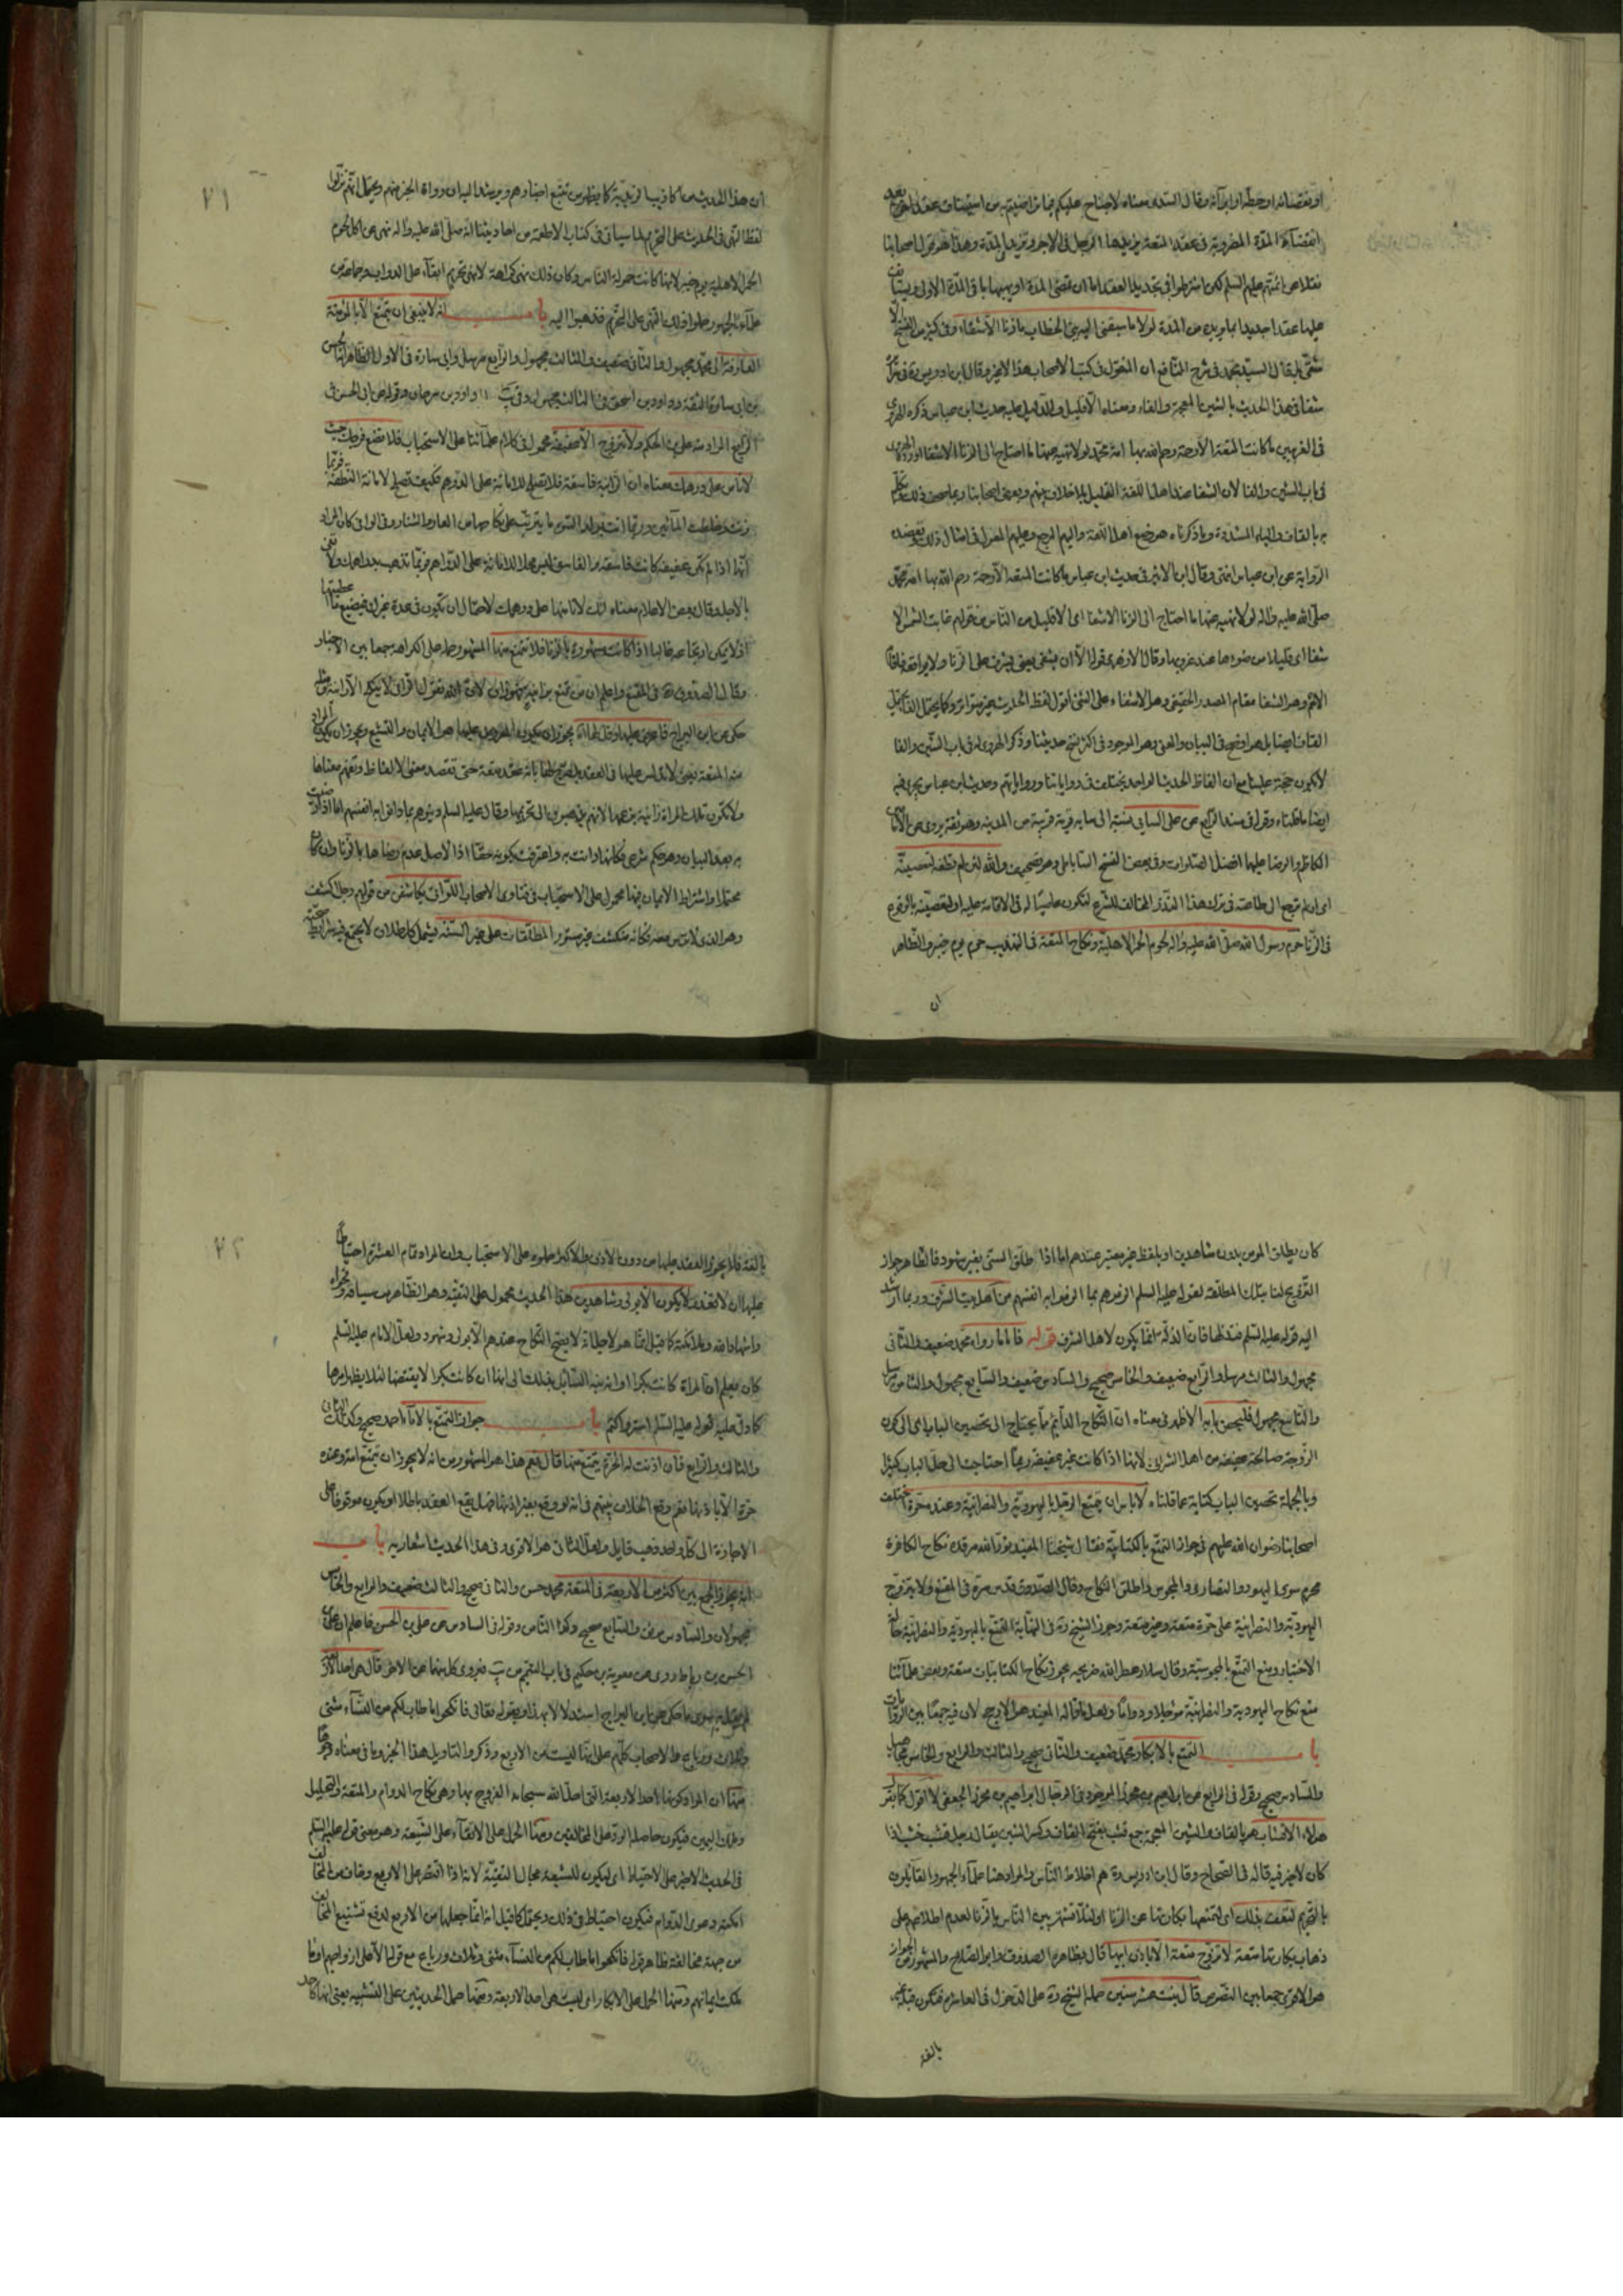 او نقصانه او حطه او ابرائه وقال السدي معناه لاجناح عليكم فيما تراضيتم به من استيناف عقد اخر بعد
انقضاء المدة المضروبة في عقد المتعة يزيدها الرجل في الاجر وتزيده في المدة وهذا هو قول اصحابنا
نقلا عن ائمتهم عليهم السلم لكن اشترطوا في تجديد العقد اما ان تقضى المدة او يهبها باقى المدة الاولى ويستانف
عليها عقدا جديدا بما يريده من المدة لولا ما سبقنى اليه بنى الخطاب ما زنا الا شفاء وفي كثير من النسخ الا
شقى بل قال السيد محمد في شرح النافع ان المنقول في كتب الاصحاب هذا الاخير وقال ابن ادريس ره في
شفا في هذا الحديث بالشين المعجمة والفاء ومعناه الا قليل والدليل عليه حديث ابن عباس ذكره الهروى
في الغريبين ما كانت المتعة الا رحمة رحم الله بها امة محمد لولا نهيه عنها ما احتاج الى الزنا الا شفا اورده الهروى
في باب الشين والفا لان الشفا عند اهل اللغة القليل بلا خلاف بينهم وبعض اصحابنا ربما صحف ذلك وتكلم
به بالقاف والياء المشددة وما ذكرناه هو وضع اهل اللغة واليهم المرجع وعليهم المعول في امثال ذلك وتعضده
الرواية عن ابن عباس انتهى وقال ابن الاثير في حديث ابن عباس ما كانت المتعة الا رحمة رحم الله بها امة محمد
صلى الله عليه واله لولا نهيه عنها ما احتاج الى الزنا الا شفا اى الا قليل من الناس من قولهم غابت الشمس الا
شفا اى قليلا من ضوءها عند غروبها وقال الازهرى قوله الا ان يشفى يعنى يشرف على الزنا ولا يواقعه فاقام
الاسم وهو الشفا مقام المصدر الحقيقى وهو الاشفاء على الشئ اقول لفظ الحديث غير متواتر وكما يحتمل الفا يحتمل
القاف ايضا بل هو اوضح في البيان والمعنى وهو الموجود في اكثر نسخ حديثنا وذكر الهروى له في باب الشين والفا
لا يكون حجة علينا مع ان الفاظ الحديث الواحد يختلف في رواياتنا ورواياتهم وحديث ابن عباس يجرى فيه
ايضا ما قلناه وقوله في سند الرابع عن على السائى نسبة الى سايه قرية قريبة من المدينه وهو ثقة يروى عن الامامين
الكاظم والرضا عليهما افضل الصلوات وفي بعض النسخ السابلى وهو تصحيف والله لئن لم تطعه لتعصينه
اى لئن لم ترجع الى طاعته في ترك هذا النذر المخالف للشرع لتكون عاصيا له في الاقامة عليه او لتعصينه بالوقوع
في الزنا حرم رسول الله صلى الله عليه واله لحوم الحمر الاهلية ونكاح المتعة في التهذيب حرم يوم خيبر والظاهر
ان
٢١
ان هذا الحديث من اكاذيب الزيدية كما يظهر من تتبع اخبارهم ويرشد اليه ان رواة الخبر منهم ويحتمل انهم نزلوا
لفظ النهى في الحديث على التحريم لما سياتى في كتاب الاطعمة من احاديثنا انه صلى الله عليه واله نهى عن اكل لحوم
الحمر الاهلية يوم خيبر لانها كانت حمولة الناس وكان ذلك نهى كراهة لا نهى تحريم ابقاء على الدواب وجماعة من
علماء الجمهور حملوا ذلك النهى على التحريم فذهبوا اليه باب انه لا ينبغى ان يتمتع الا بالمؤمنة
العارفة الى محمد مجهول والثانى ضعيف والثالث مجهول والرابع مرسل وابى سارة في الاول الظاهر انه الحسن
بن ابى سارة الثقة وداود بن اسحق في الثالث مجهول وفي يب داود بن سرحان وقوله عن ابى الحسن في
الرابع المراد منه على بن الحكم ولا تتزوج الا عفيفة محمول في كلام علمائنا على الاستحباب فلا تضع فرجك حيث
لا تامن على درهمك معناه ان الزانية فاسقة فلا تصلح للامانة على الدرهم فكيف تصلح لامانة النطفة فربما
زنت وخلطت المائين وربما اتت بولد السوء ما يترتب على نكاحها من العار والشنار وفي الوافى كان المراد
انها اذا لم تكن عفيفة كانت فاسقة والفاسق ليس محلا للامانة على الدراهم فربما تذهب بدراهمك ولا تفى
بالاجل وقال بعض الاعلام معناه انك لا تامنها على درهمك لاحتمال ان تكون في عدة غيرك فيضيع ما اعطيتها
اذ لا يمكن ارتجاعه غالبا اذا كانت مشهورة بالزنا فلا تتمتع منها المشهور حمله على الكراهة جمعا بين الاخبار
وقال الصدوق ره في المقنع واعلم ان من تمتع بزانية فهو زان لان الله تعالى يقول الزانى لا ينكح الا زانية ومثله
حكى عن ابن البراج فاعرض عليها وقل لها يجوز ان يكون المعروض عليها هو الايمان والتشيع ويجوز ان يكون المراد
منه المتعة يعنى لا تدلس عليها في العقد بل صرح لها بانه عقد متعة حتى تقصد معنى الالفاظ وتفهم معناها
ولا تكون تلك المراة زانية بزعمها لانهم يذهبون الى تحريمها وقال عليه السلم دينوهم بما دانوا به انفسهم اما اذا رضيت
به بعد البيان وهو حكم شرعى فكانها دانت به واعترفت بكونه حقا اذ الاصل عدم رضاها بالزنا وان كان
محتملا واشتراط الايمان فيها محمول على الاستحباب في فتاوى الاصحاب اللواتى يكاشفن من قولهم رجل اكشف
وهو الذى لا ترس معه فكانه منكشف غير مستور المطلقات على غير السنة يشمل كل طلاق لا يجتمع فيه شرايط صحته
كان يطلق المومن بدون شاهدين او بلفظ غير معتبر عندهم اما اذا طلق السنى بغير شهود فالظاهر جواز
التزويج لنا بتلك المطلقة لقوله عليه السلم الزموهم بما الزموا به انفسهم من اهل بيت الشرف وربما ارشد
اليه قوله عليه السلم عند تلفها فان الذلة انما يكون لاهل الشرف قوله فاما ما رواه محمد ضعيف والثانى
مجهول والثالث مرسل والرابع ضعيف والخامس صحيح والسادس ضعيف والسابع مجهول والثامن مرسل
والتاسع مجهول فليحصن بابه الاظهر في معناه ان النكاح الدائم ما يحتاج الى تحصين الباب اى الى كون
الزوجة صالحة عفيفة من اهل الشرف لانها اذا كانت غير عفيفة ربما احتاجت الى حل الباب كثيرا
وبالجملة تحصين الباب كناية عما قلناه لا باس ان يتمتع الرجل باليهودية والنصرانية وعنده حرة اختلف
اصحابنا رضوان الله عليهم في جواز التمتع بالكتابية فقال شيخنا المفيد نور الله مرقده نكاح الكافرة
محرم سوى اليهود والنصارى والمجوس واطلق النكاح وقال الصدوق قدس سره في المقنع ولا يتزوج
اليهودية والنصرانية على حرة متعة وغير متعة وجوز الشيخ ره في النهاية التمتع باليهودية والنصرانية حالة
الاختيار ومنع التمتع بالمجوسية وقال سلار عطر الله ضريحه يجوز نكاح الكتابيات متعة وبعض علمائنا
منع نكاح اليهودية والنصرانية مؤجلا ودواما ولعل ما قاله المفيد هو الارجح لان فيه جمعا بين الروايات
باب التمتع بالابكار محمد ضعيف والثانى صحيح والثالث والرابع والخامس مجاهيل
والسادس صحيح وقوله في الرابع عن ابراهيم بن محرز الموجود في الرجال ابراهيم بن محرز الجعفى لا اقول كما يقول
هؤلاء الاقشاب هو بالقاف والشين المعجمة جمع قشب بفتح القاف وكسر الشين يقال رجل قشب خشب اذا
كان لا خير فيه قاله في الصحاح وقال ابن ادريس ره هم اخلاط الناس والمراد هنا علماء الجمهور القايلون
بالتحريم لتعفف بذلك اى لتمتعها بكارتها عن الزنا او لئلا تشتهر بين الناس بالزنا لعدم اطلاعهم على
ذهاب بكارتها متعة لا تزوج متعة الا باذن ابيها قال بظاهره الصدوق وابو الصلاح والمشهور الجواز
هو الاقوى جمعا بين النصوص قال بنت عشر سنين حمله الشيخ ره على الدخول في العاشرة فتكون
بالغة
٢٢
بالغة فلا يجوز العقد عليها من دون الاذن بل الاكثر حملوه على الاستحباب وان المراد تمام العشر احتياطا
عليها ان لا تخدع لا يكون الا بولى وشاهدين هذا الحديث محمول على التقية وهو الظاهر من سياقه وفحواه
واشهاد الله وملائكته كما قيل انما هو لاحلية لا يصح النكاح عندهم الا بولى وشهود ولعل الامام عليه السلم
كان يعلم ان المراة كانت بكرا او انه نبه السائل بذلك الى انها ان كانت بكرا لا يفتضها لئلا يظهر امرها
كما دل عليه قوله عليه السلم استر واكتم باب جواز التمتع بالاماء احمد صحيح وكذلك الثانى
والثالث والرابع فان اذنت له الحرة يتمتع منها قال نعم هذا هو المشهور من انه لا يجوز ان يتمتع امة وعنده
حرة الا باذنها نعم وقع الخلاف بينهم في انه لو وقع بغير اذنها فهل يقع العقد باطلا او يكون موقوفا على
الاجازة الى كل واحد ذهب قايل ولعل الثانى هو الاقوى وفي هذا الحديث اشعار به باب
انه يجوز الجمع بين اكثر من الاربعة في المتعة محمد حسن والثانى صحيح والثالث ضعيف والرابع والخامس
مجهولان والسادس موثق والسابع صحيح وكذا الثامن وقوله في السادس عن على بن الحسن فاعلم ان على
الحسن بن رباط روى عن معوية بن حكيم في باب التيمم من يب فيروى كل منهما عن الاخر قال هى احد الاربع
لم يقل به سوى ما حكى عن ابن البراج استدلالا بهذا وبقوله تعالى فانكحوا ما طاب لكم من النساء مثنى
وثلاث ورباع والاصحاب كلهم على انها ليست من الاربع وذكروا لتاويل هذا الخبر وما في معناه وجوها
منها ان المراد كونها احد الاربعة التى احل الله سبحانه الفروج بها وهى نكاح الدوام والمتعة والتحليل
وملك اليمين فيكون حاصله الرد على المخالفين ومنها الحمل على الاتقاء على الشيعة وهو معنى قوله عليه السلم
في الحديث الاخير على الاحتياط اى ليكون للشيعة مجال التقية لانه اذا اقتصر على الاربع وخاف من المخالف
امكنه دعوى الدوام فيكون احتياط في ذلك ويحتمل كما قيل انه انما جعلها من الاربع لدفع تشنيع المخالف
من جهة مخالفة ظاهر قوله فانكحوا ما طاب لكم من النساء مثنى وثلاث ورباع مع قوله الا على ازواجهم او ما
ملكت ايمانهم ومنها الحمل على الانكار اى ليست هى احد الاربعة ومنها حمل الحديثين على التشبيه يعنى انها كاحد